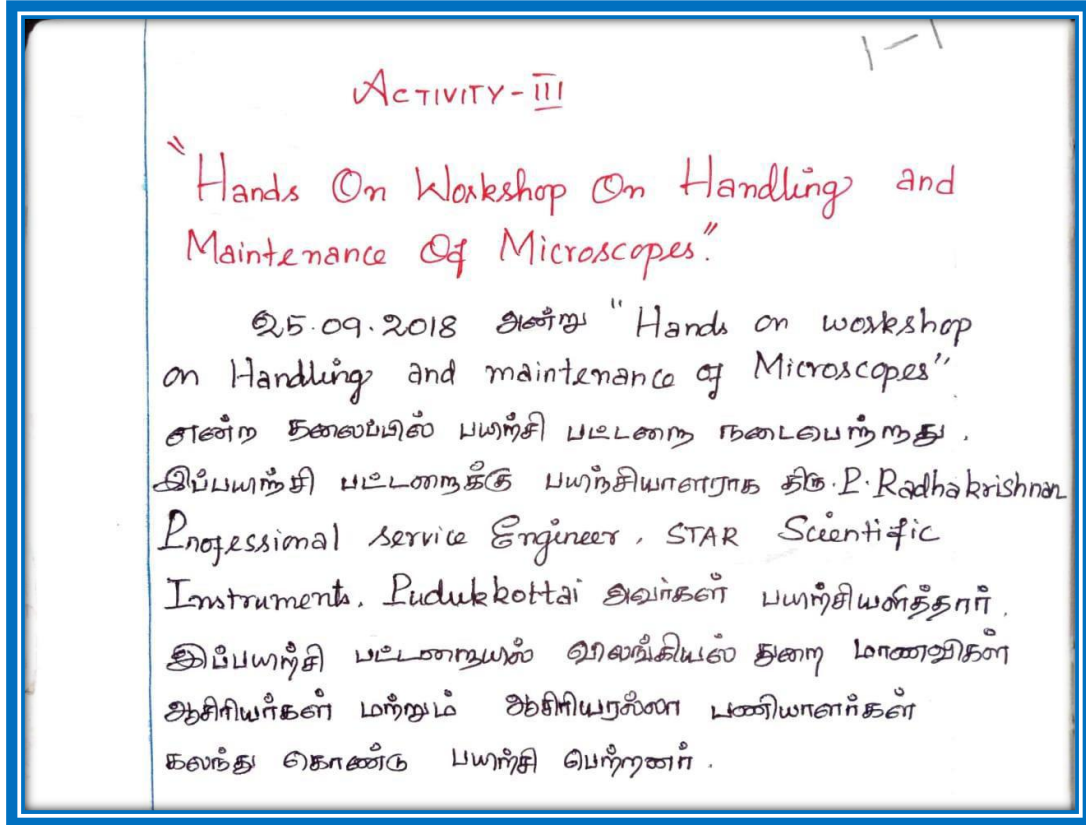 1-1
ACTIVITY-III
"Hands On Workshop On Handling and
Maintenance Of Microscopes".
25.09.2018 அன்று "Hands on workshop
on Handling and maintenance of Microscopes"
என்ற தலைப்பில் பயிற்சி பட்டறை நடைபெற்றது.
இப்பயிற்சி பட்டறைக்கு பயிற்சியாளராக திரு. P. Radhakrishnan
Professional service Engineer, STAR Scientific
Instruments, Pudukkottai அவர்கள் பயிற்சியளித்தார்.
இப்பயிற்சி பட்டறையில் விலங்கியல் துறை மாணவிகள்
ஆசிரியர்கள் மற்றும் ஆசிரியரல்லா பணியாளர்கள்
கலந்து கொண்டு பயிற்சி பெற்றனர்.